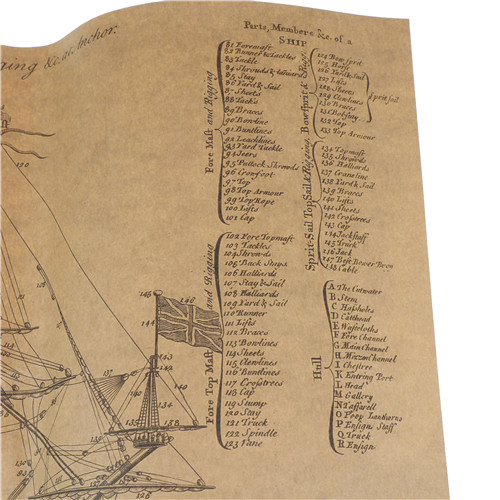 ging &c. at Anchor.
Parts, Members &c. of a
SHIP
Fore Mast and Rigging
81 Foremast
82 Runner & Tackles
83 Tackle
84 Shrowds & Laniards
85 Stay
86 Yard & Sail
87 Sheets
88 Tacks
89 Braces
90 Bowline
91 Buntlines
92 Leachlines
93 Yard Tackle
94 Jeers
95 Puttock Shrowds
96 Crowfoot
97 Top
98 Top Armour
99 Top Rope
100 Lifts
101 Cap
Fore Top Mast and Rigging
102 Fore Topmast
103 Tackles
104 Shrowds
105 Back Stays
106 Halliards
107 Stay & Sail
108 Halliards
109 Yard & Sail
110 Runner
111 Lifts
112 Braces
113 Bowlines
114 Sheets
115 Clewlines
116 Buntlines
117 Crosstrees
118 Cap
119 Stump
120 Stay
121 Truck
122 Spindle
123 Vane
Bowsprit & Rigg.
124 Bowsprit
125 Horse
126 Yard & Sail
127 Lifts
128 Sheets
129 Clewlines
130 Braces
131 Bobstay
132 Top
133 Top Armour
Spritsail
Sprit-Sail Top Sail & Rigging
134 Topmast
135 Shrowds
136 Halliards
137 Craneline
138 Yard & Sail
139 Braces
140 Lifts
141 Sheets
142 Crosstrees
143 Cap
144 Jackstaff
145 Truck
146 Jack
147 Best Bower Buoy
148 Cable
Hull
A The Cutwater
B Stem
C Hasholes
D Catthead
E Wastcloths
F Fore Channel
G Main Channel
H Mezon Channel
I Chestree
K Entring Port
L Head
M Gallery
N Taffarell
O Poop Lanthorns
P Ensigns Staff
Q Truck
R Ensign
120
145
146
144
143
142
134
141
139